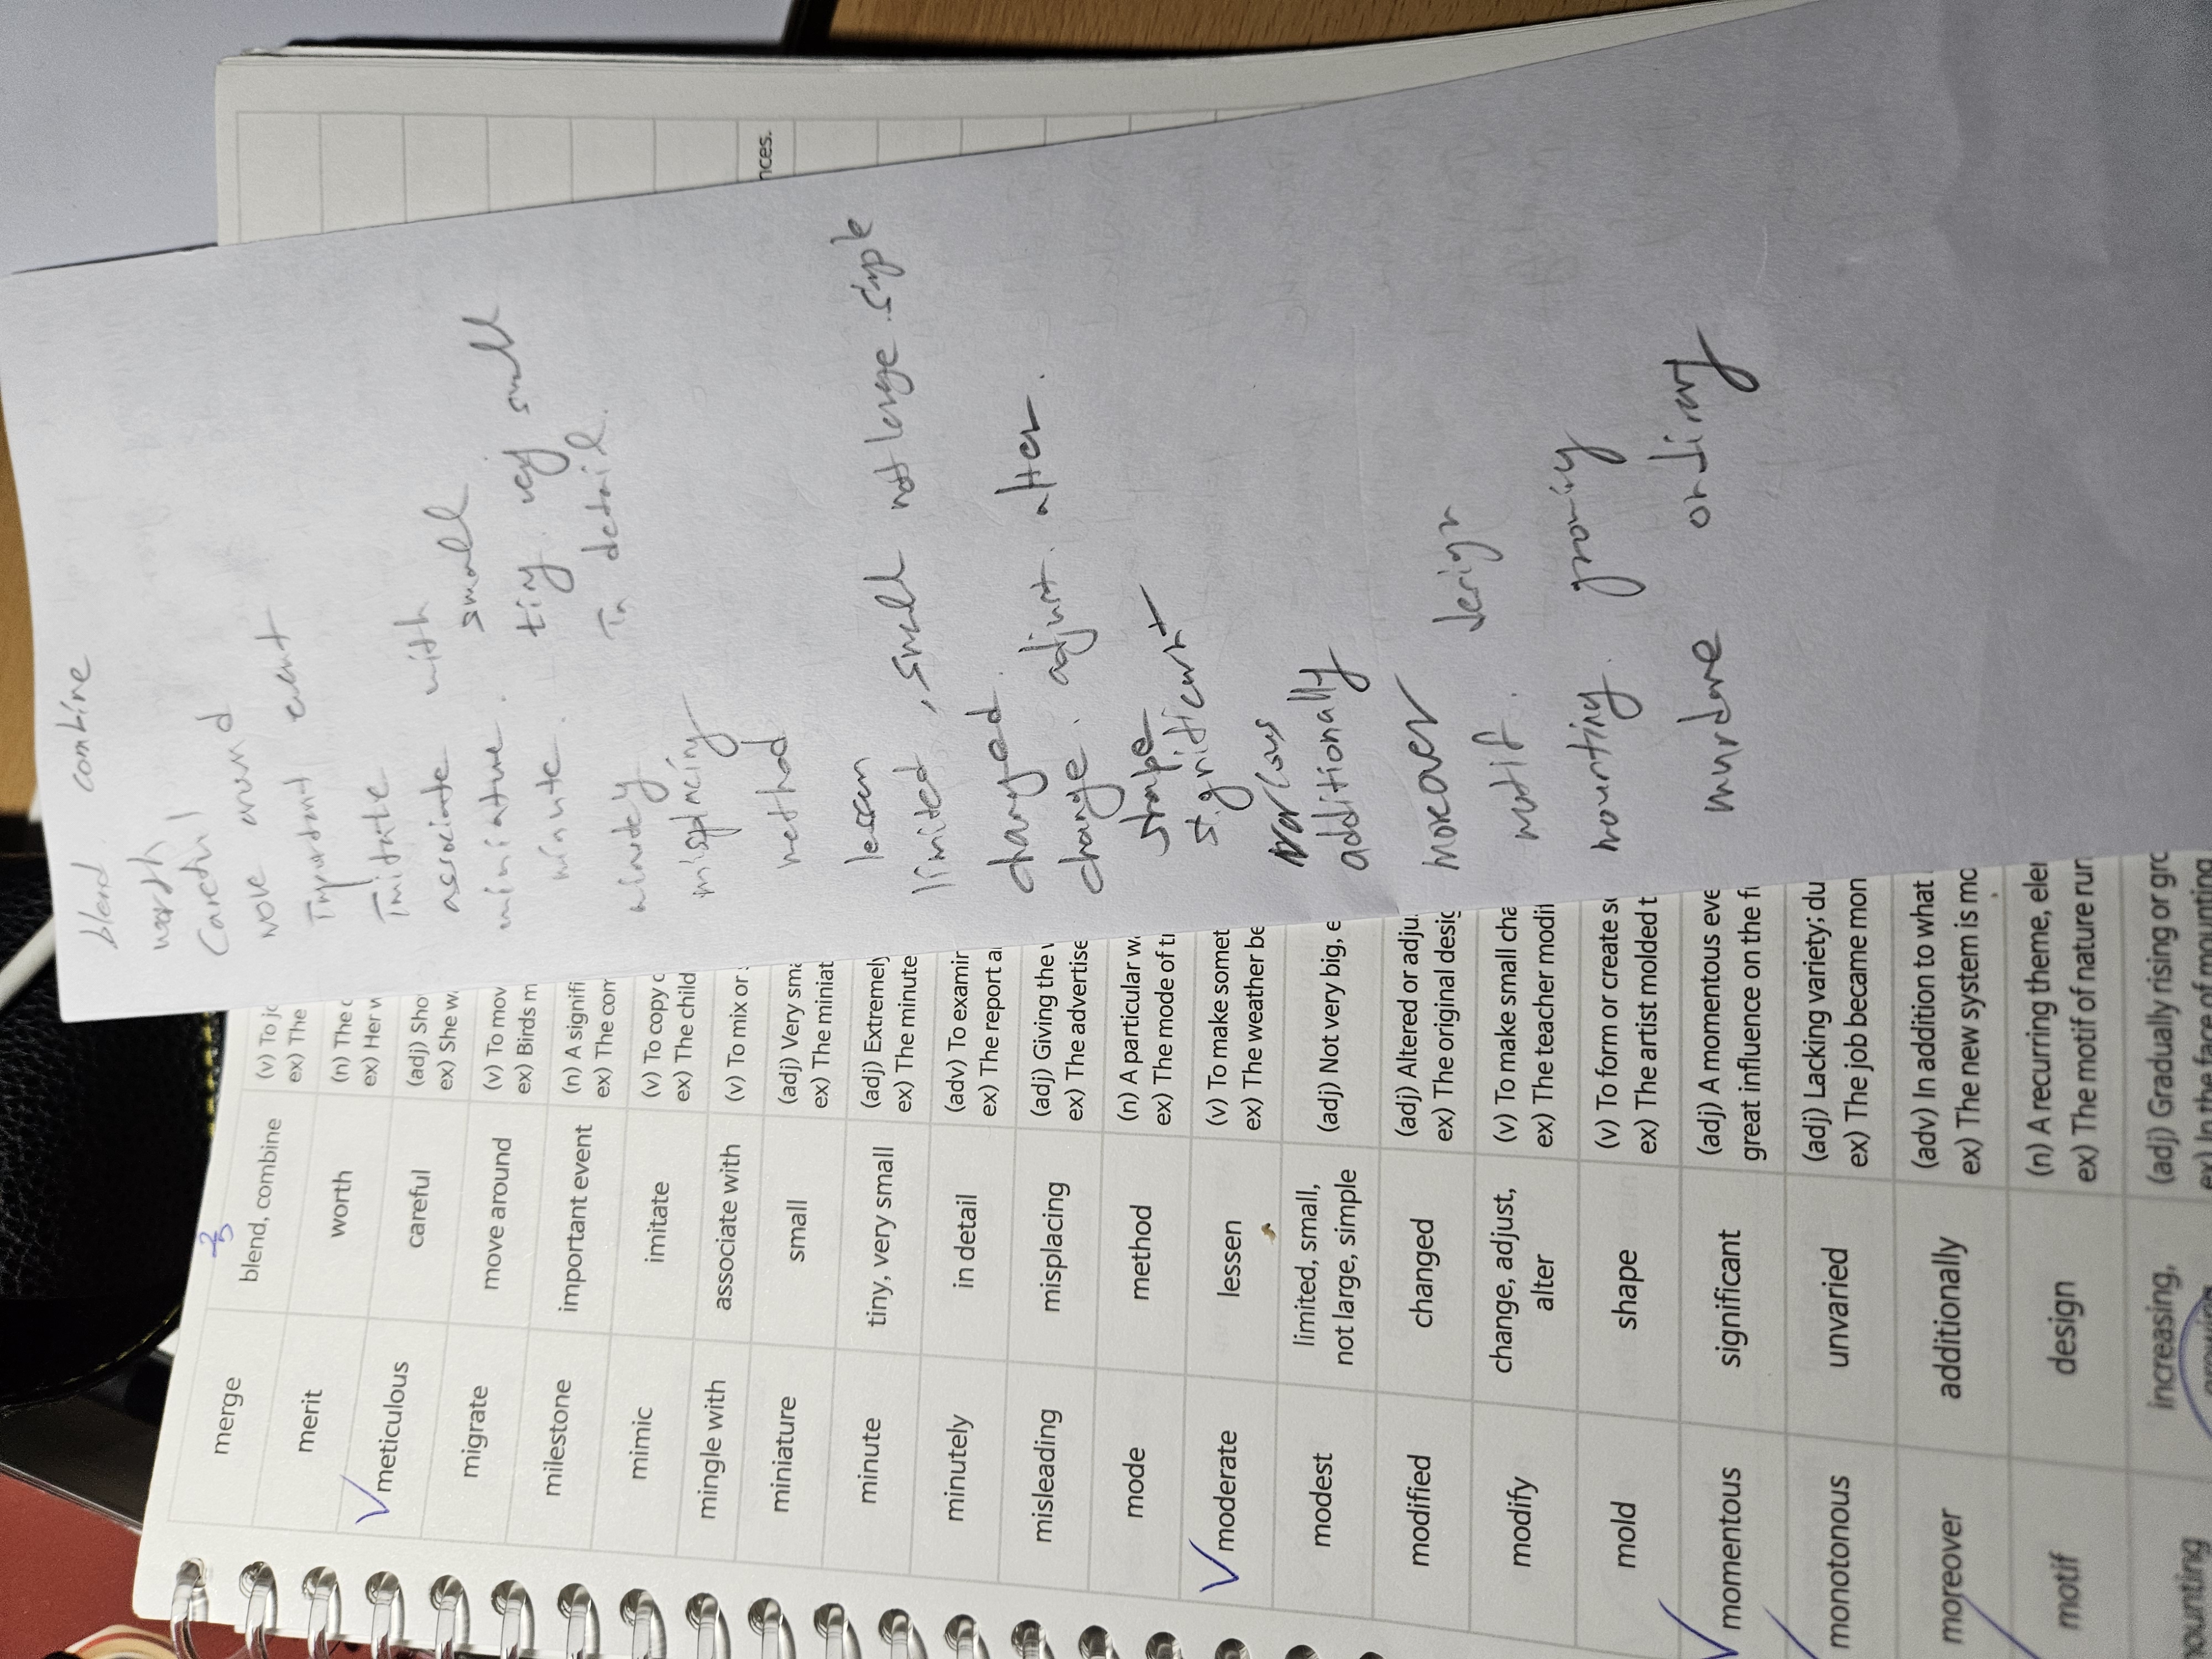 blend. combine
worth
careful
move around
Important event
Imitate
associate with
miniature. small
minute. tiny. very small
minutely In detail.
misplacing
method
lessen
limited, small not large simple
changed.
change. adjust. alter.
shape
significant
additionally
moreover
motif. design
mounting. growing
mundane ordinary
nces.
2/5
merge blend, combine (v) To jo
ex) The
merit worth (n) The
ex) Her w
✓ meticulous careful (adj) Sho
ex) She w
migrate move around (v) To mov
ex) Birds m
milestone important event (n) A signifi
ex) The com
mimic imitate (v) To copy
ex) The child
mingle with associate with (v) To mix or
miniature small (adj) Very sma
ex) The miniat
minute tiny, very small (adj) Extremely
ex) The minute
minutely in detail (adv) To examin
ex) The report a
misleading misplacing (adj) Giving the
ex) The advertise
mode method (n) A particular w
ex) The mode of t
✓ moderate lessen (v) To make somet
ex) The weather be
modest limited, small,
not large, simple (adj) Not very big, e
modified changed (adj) Altered or adju
ex) The original desig
modify change, adjust,
alter (v) To make small cha
ex) The teacher modif
mold shape (v) To form or create s
ex) The artist molded t
✓ momentous significant (adj) A momentous eve
great influence on the f
monotonous unvaried (adj) Lacking variety; du
ex) The job became mon
moreover additionally (adv) In addition to what
ex) The new system is mo
motif design (n) A recurring theme, ele
ex) The motif of nature run
mounting increasing,
growing (adj) Gradually rising or gro
ex) In the face of mounting